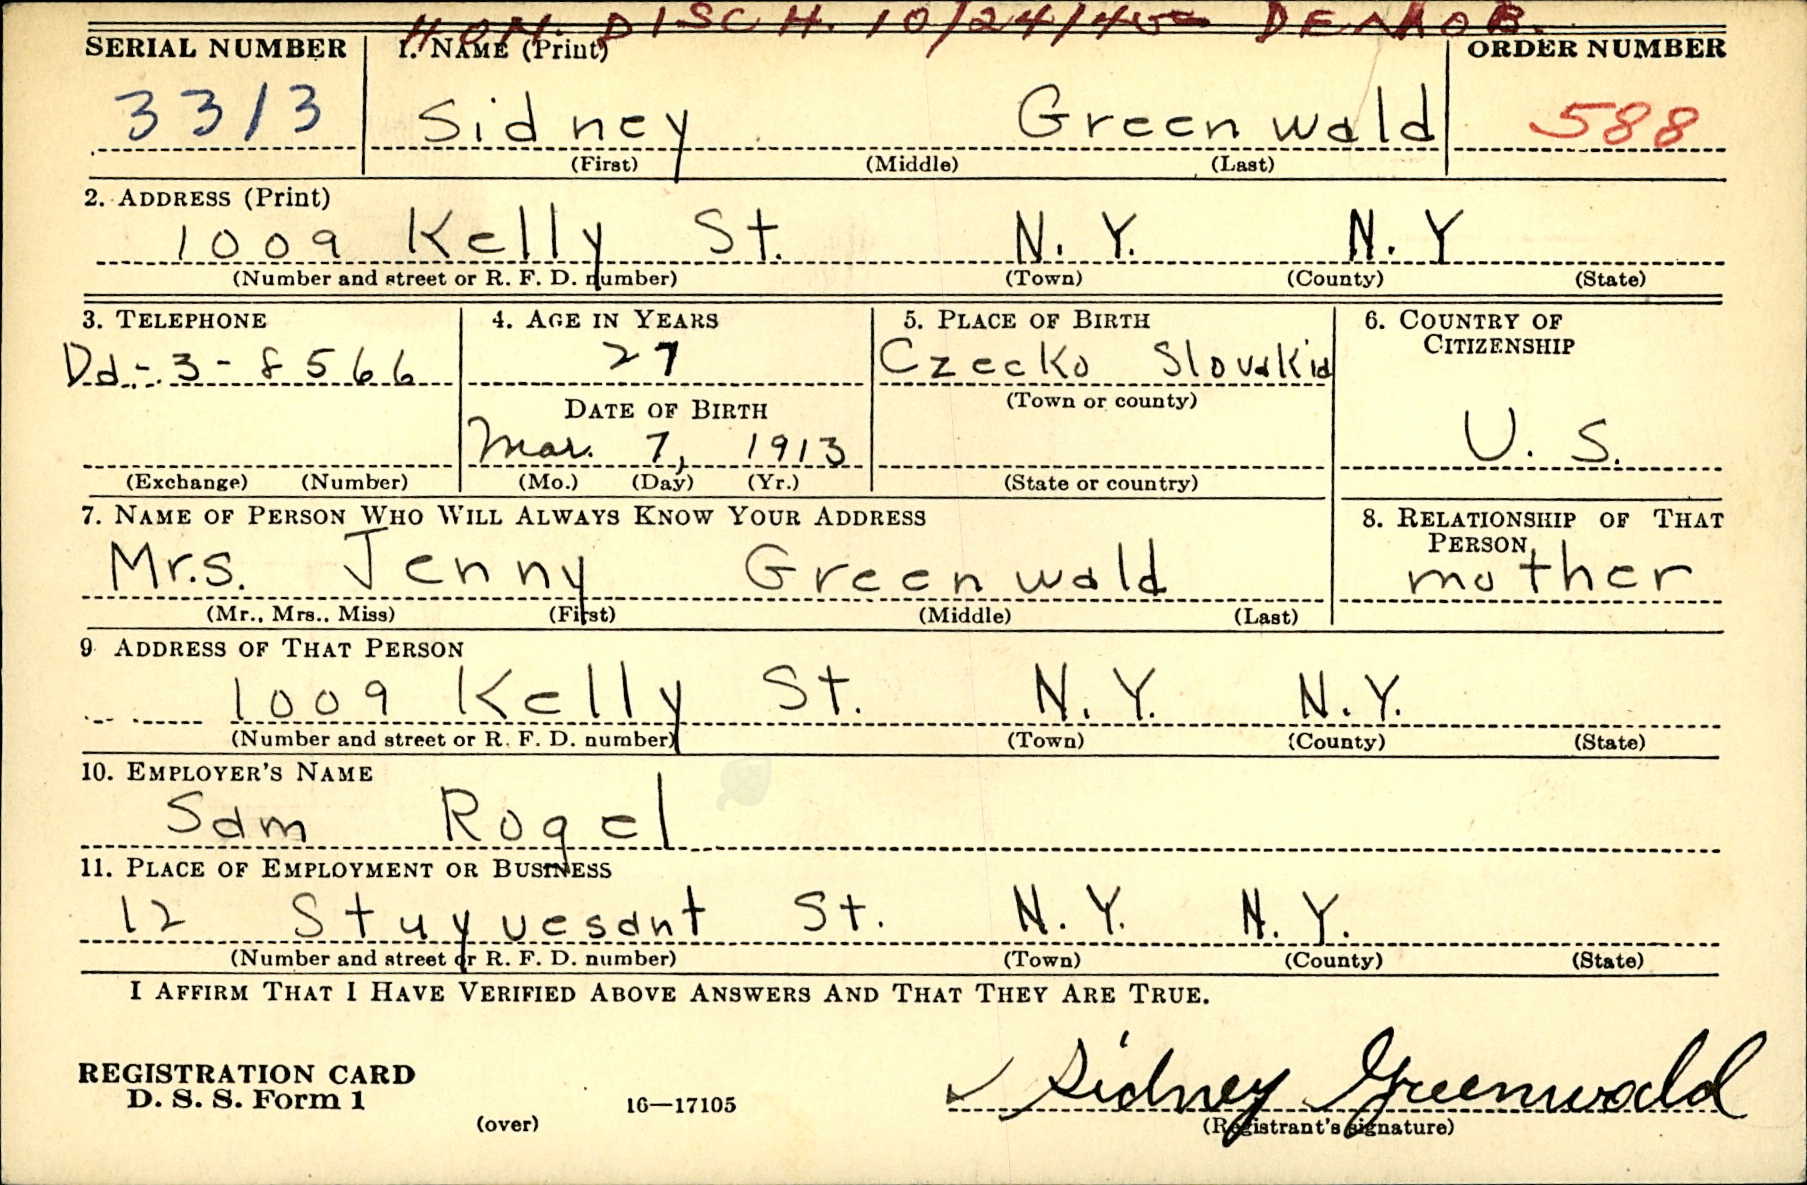 HON. DISCH. 10/24/45 DEMOB.
SERIAL NUMBER 1. NAME (Print) ORDER NUMBER
3313 Sidney Greenwald 588
(First) (Middle) (Last)
2. ADDRESS (Print)
1009 Kelly St. N. Y. N. Y
(Number and street or R. F. D. number) (Town) (County) (State)
3. TELEPHONE 4. AGE IN YEARS 5. PLACE OF BIRTH 6. COUNTRY OF CITIZENSHIP
Dd-3-8566 27 Czecko Slovakia
(Town or county)
DATE OF BIRTH
Mar. 7, 1913 U. S.
(Exchange) (Number) (Mo.) (Day) (Yr.) (State or country)
7. NAME OF PERSON WHO WILL ALWAYS KNOW YOUR ADDRESS 8. RELATIONSHIP OF THAT PERSON
Mrs. Jenny Greenwald mother
(Mr., Mrs., Miss) (First) (Middle) (Last)
9 ADDRESS OF THAT PERSON
1009 Kelly St. N. Y. N. Y.
(Number and street or R. F. D. number) (Town) (County) (State)
10. EMPLOYER'S NAME
Sam Rogel
11. PLACE OF EMPLOYMENT OR BUSINESS
12 Stuyvesant St. N. Y. N. Y.
(Number and street or R. F. D. number) (Town) (County) (State)
I AFFIRM THAT I HAVE VERIFIED ABOVE ANSWERS AND THAT THEY ARE TRUE.
Sidney Greenwald
REGISTRATION CARD
D. S. S. Form 1 16—17105
(over) (Registrant's signature)